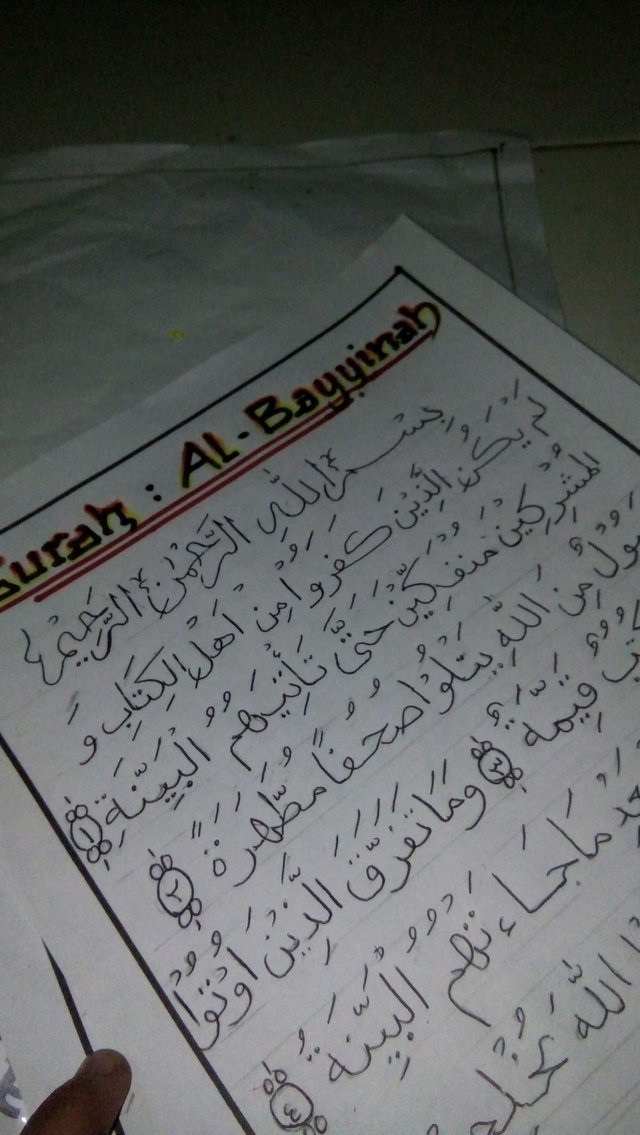 Surah : AL-Bayyinah
بِسْمِ اللَّهِ الرَّحْمٰنِ الرَّحِيْمِ
لَمْ يَكُنِ الَّذِيْنَ كَفَرُوْا مِنْ اَهْلِ الْكِتَابِ وَ
الْمُشْرِكِيْنَ مُنْفَكِّيْنَ حَتّٰى تَأْتِيَهُمُ الْبَيِّنَةُ ١
مِنَ اللّٰهِ يَتْلُوْا صُحُفًا مُطَهَّرَةً ٢
قَيِّمَةٌ ٣ وَمَا تَفَرَّقَ الَّذِيْنَ اُوْتُوْا
مَا جَاءَتْهُمُ الْبَيِّنَةُ ٤
اللّٰهَ